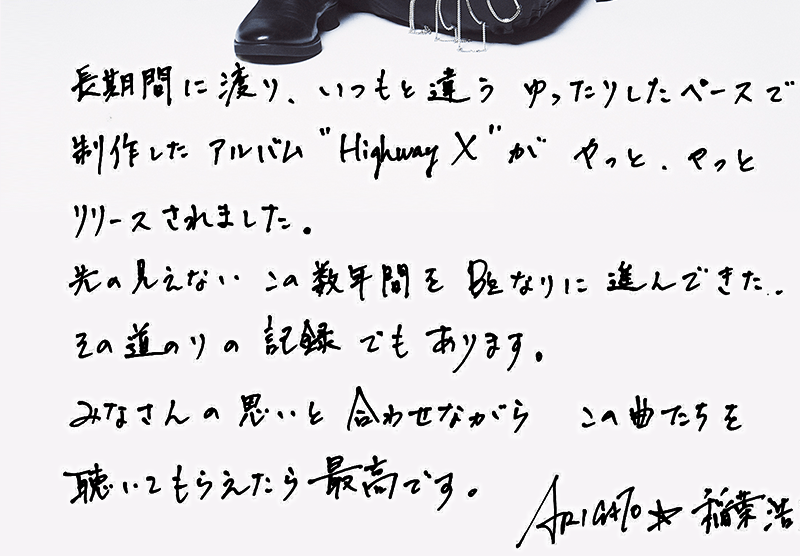 長期間に渡り、いつもと違う ゆったりしたペースで
制作した アルバム "Highway X" が やっと、やっと
リリースされました。
先の見えない この数年間を B'zなりに 進んできた..
その道のりの 記録 でも あります。
みなさんの 思いと 合わせながら この曲たちを
聴いてもらえたら 最高です。
ARIGATO☆ 稲葉浩